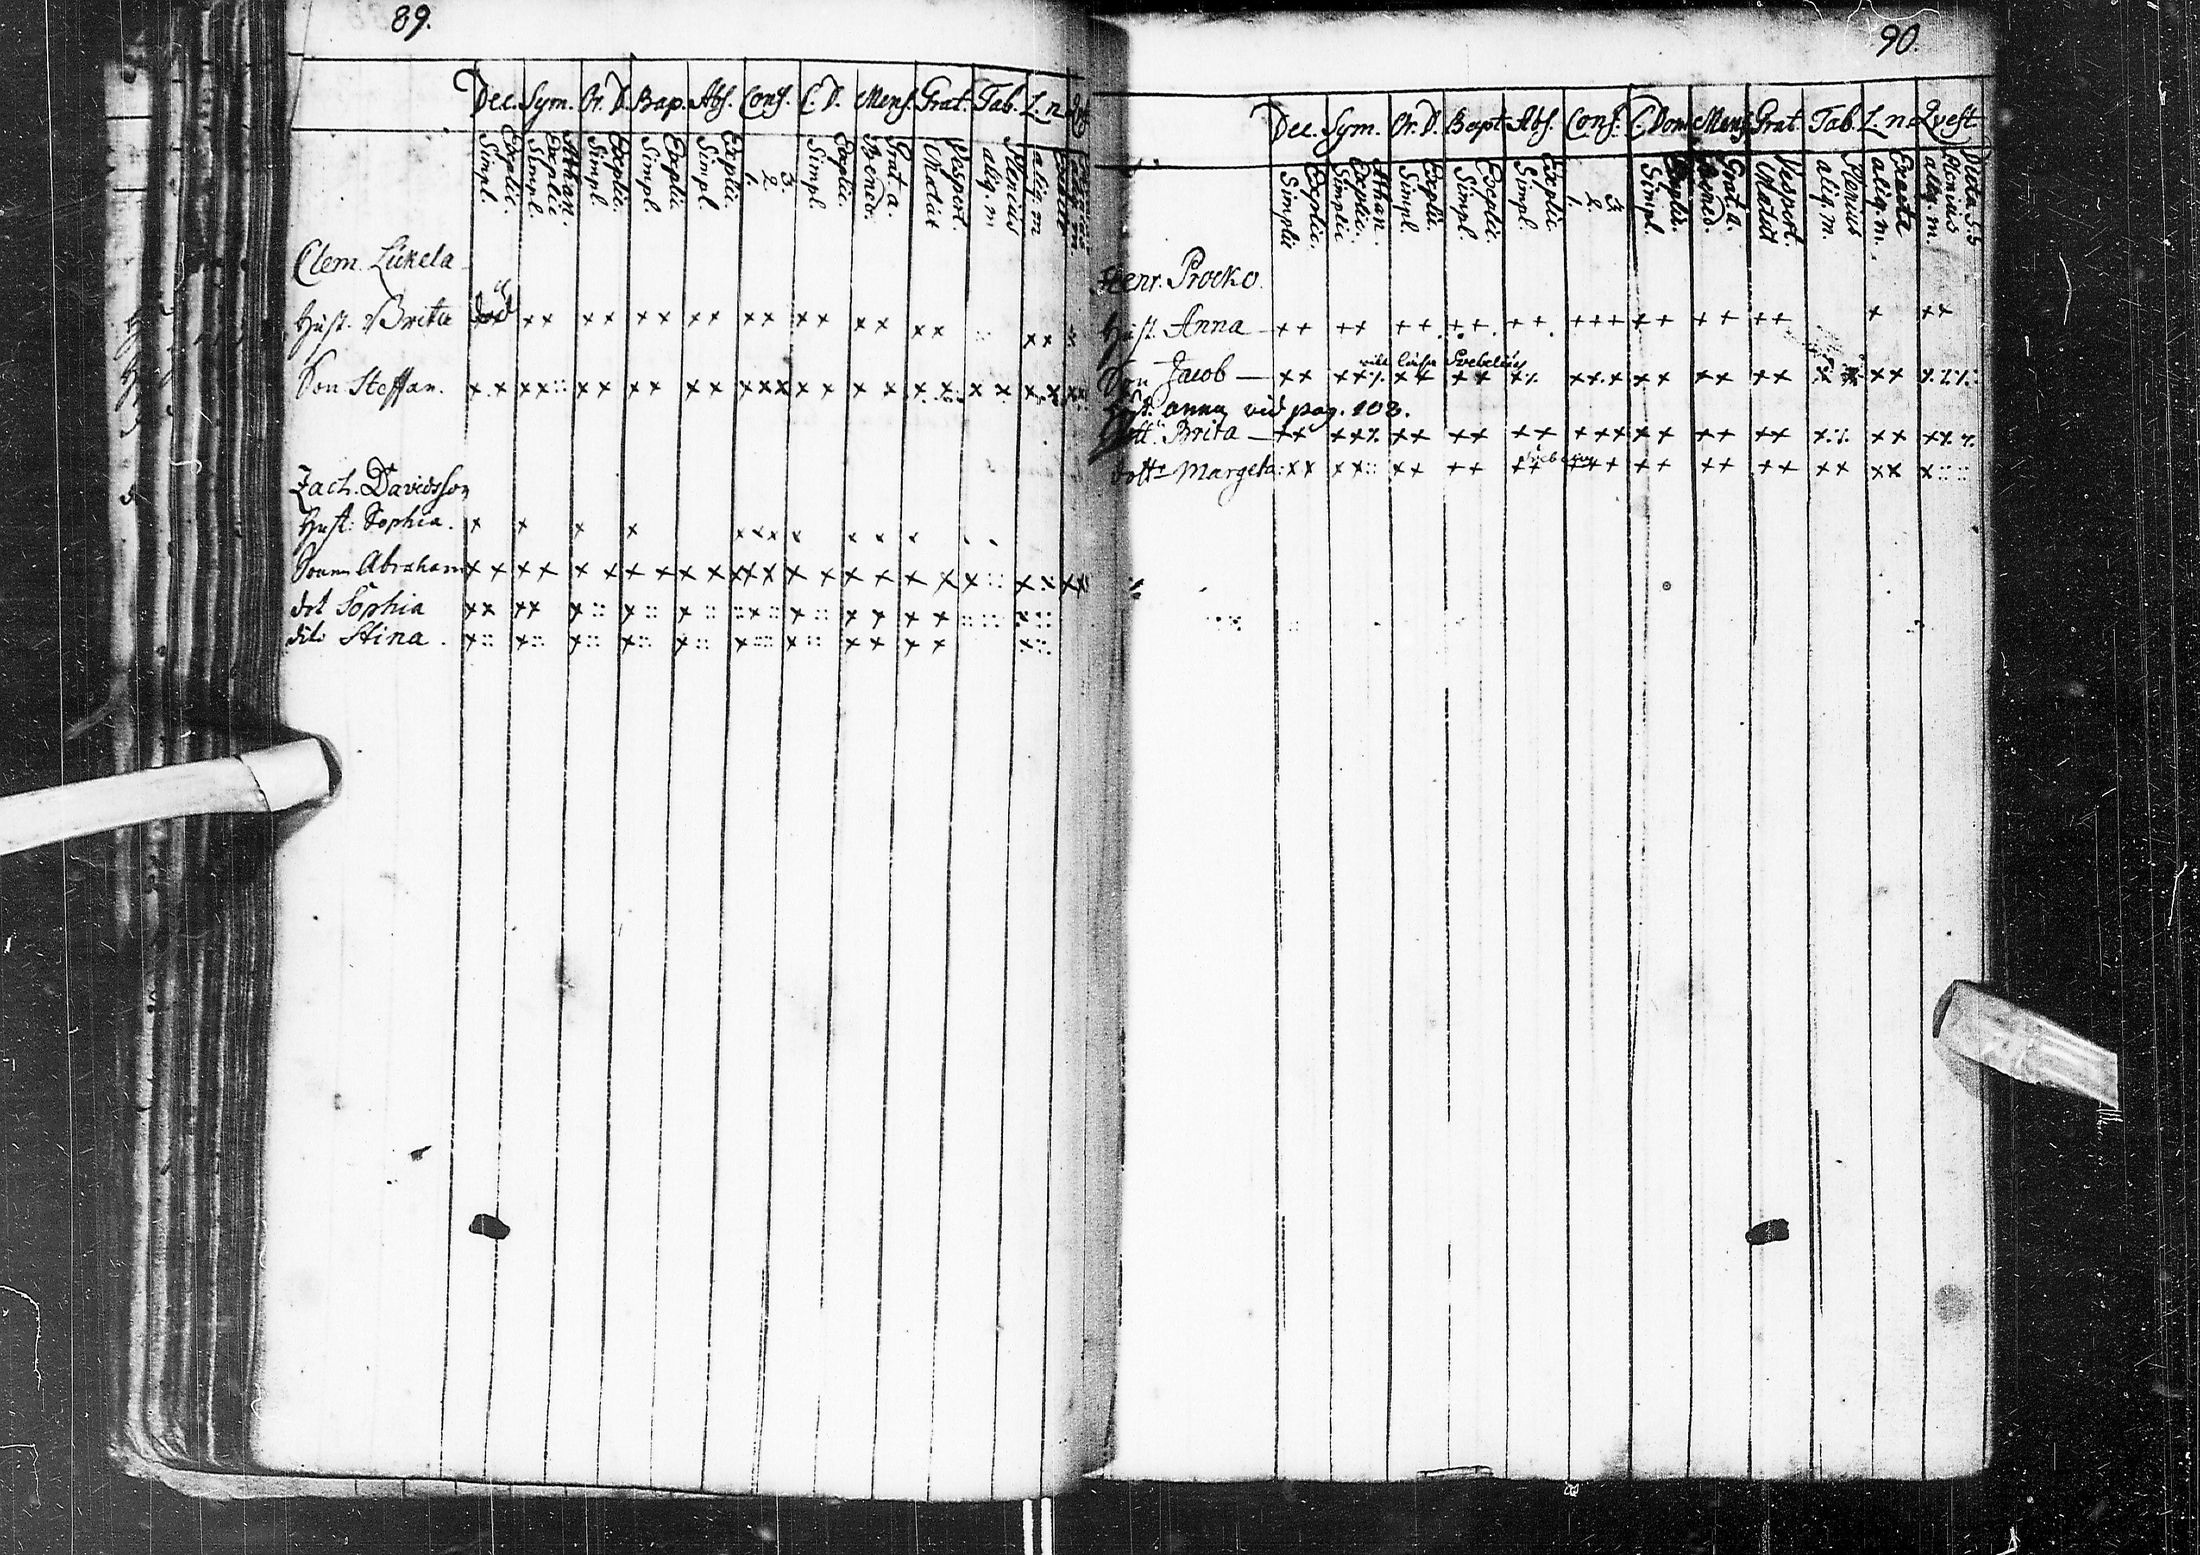 89.
Dec. Sym. Or. D. Bap. Abs. Conf. C. D. Mens. Grat. Tab. L. n.
Simpl. Explic. Simpl. Explic. Athan. Simpl. Explic. Simpl. Explic. Simpl. Explic. 1. 2. 3. Simpl. Explic. Bened. Grat. a. Matut. Vespert. aliq. m. Plenius aliq. m
Clem. Lukela
Hust. Brita död ×× ×× ×× ×× ×× ×× ×× ×× ××
Son Steffan. ×× ×× :: ×× ×× ×× ×××× ×× ××
Zach. Davidsson
Hust: Sophia. × × × ×
Sonen Abraham ×× ×× ×× ×× ×× ××× ×× ×× ××
dot Sophia ×× ×× × :: × :: × ::
dito Stina. × :: × :: × :: × :: × ::
90.
Dec. Sym. Or. D. Bapt. Abs. Conf. C. Dom. Mens. Grat. Tab. L. n. Qvest.
Simplic Explic. Simplic Explic. Athan. Simpl. Explic. Simpl. Explic. Simpl. Explic 1. 2. 3. Simpl. Explic. Bened. Grat. a. Matut. Vespert. aliq. m. Plenius aliq. m. Exacte aliq. m. Plenius Dicta S. S
Henr. Procko.
Hust. Anna ++ ++ ++ ++ ++ +++ ++ ++ ++ + ++
läsa Svebelius
Son Jacob — ×× ××
Hust. anna vid pag. 103.
Dott. Brita — ×× ××
dottr Margeta: ×× ×× ::